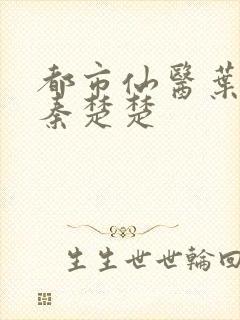 都市仙醫葉
秦楚楚
生生世世輪回